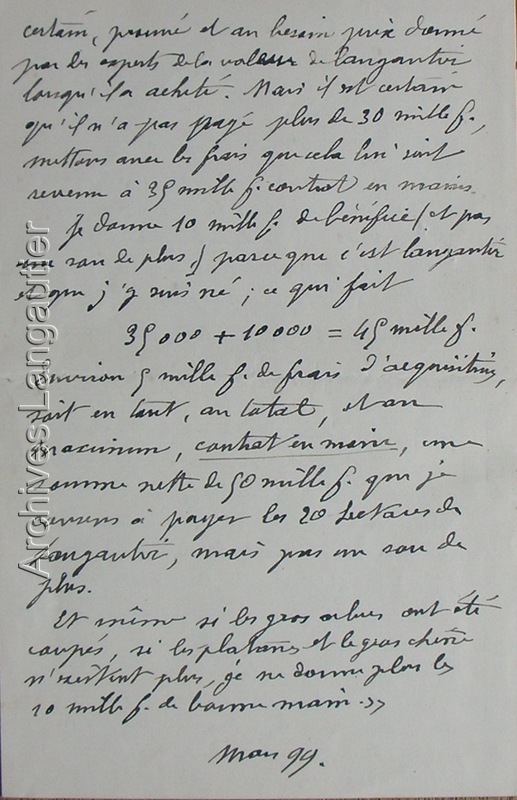 certain, prouvé et au besoin prix donné
par des experts de la valeur de Langautier
lorsqu'il a acheté. Mais il est certain
qu'il n'a pas payé plus de 30 mille f.,
mettons avec les frais que cela lui soit
revenu à 35 mille f. contrat en mains.
Je donne 10 mille f. de bénéfice (et pas
un sou de plus) parce que c'est Langautier
et que j'y suis né ; ce qui fait
35000 + 10000 = 45 mille f.
environ 5 mille f. de frais d'acquisition,
soit en tout, au total, et au
maximum, contrat en main, une
somme nette de 50 mille f. que je
consens à payer les 20 hectares de
Langautier, mais pas un sou de
plus.
Et même si les gros arbres ont été
coupés, si les platanes et le gros chêne
n'existent plus, je ne donne plus les
10 mille f. de bonne main. »
Mars 99.
Archives Langautier